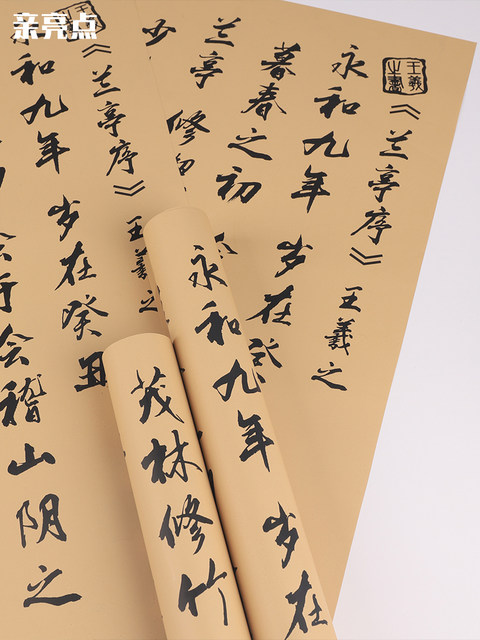 亲亮点
《兰亭序》王羲之
永和九年 岁在
暮春之初
兰亭 修
《兰亭序》王羲之
和九年 岁在癸丑
会于会稽山阴之
永和九年 岁在
茂林修竹